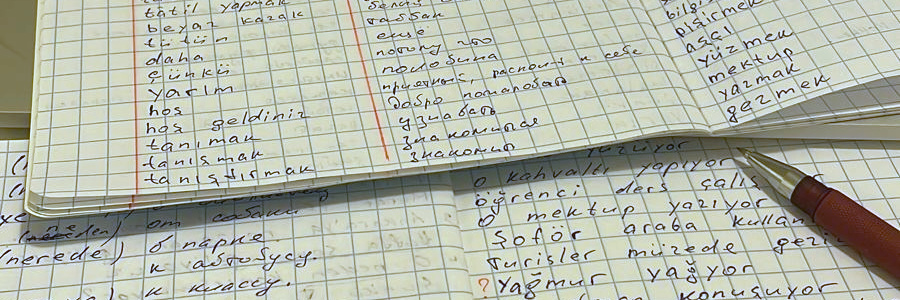 tatil yapmak
beyaz kazak
tütün
daha
çünkü
yarım
hoş
hoş geldiniz
tanımak
tanışmak
tanıştırmak
белый
табак
еще
потому что
половина
приятный, распол. к себе
добро пожаловать
узнавать
знакомиться
знакомить
bilgi
pişirmek
aşçı
yüzmek
mektup
yazmak
gezmek
от собаки
(nereden)
в парке
(nerede) к автобусу.
к классу.
yüzüyor
o kahvaltı yapıyor
öğrenci ders
o mektup yazıyor
Şoför araba
Turisler müzede
? Yağmur yağıyor
konuşuyor